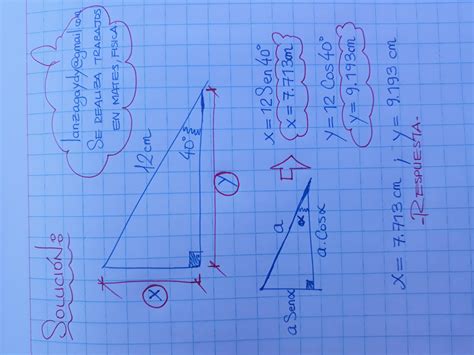 SOLUCIÓN:
lanzagaydy@gmail.com
SE REALIZA TRABAJOS
EN MATES, FISICA
12cm
40°
X
Y
a
α
a Senα
a.Cosα
x = 12 Sen 40°
x = 7.713cm
y = 12 Cos 40°
y = 9.193cm
x = 7.713 cm ; y = 9.193 cm
-RESPUESTA-